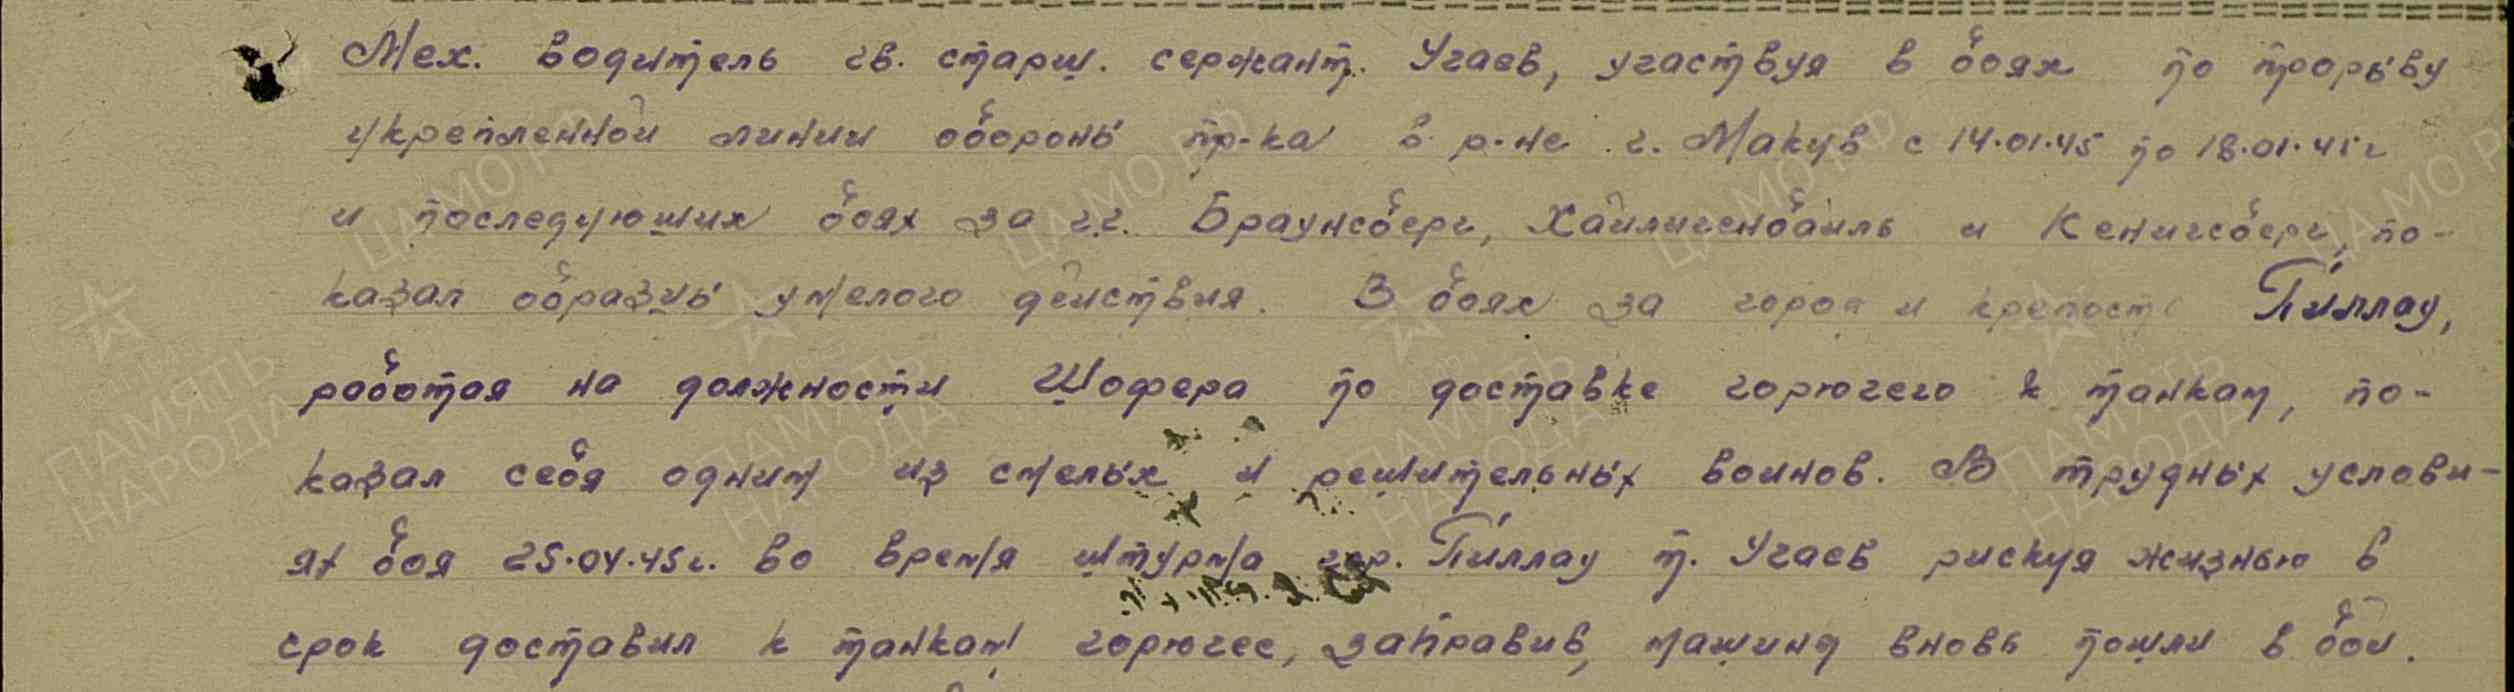 Мех. водитель гв. старш. сержант. Угаев, участвуя в боях по прорыву
укрепленной линии обороны пр-ка в р-не г. Макув с 14.01.45 по 18.01.45г
и последующих боях за г.г. Браунсберг, Хайлигенбайль и Кенигсберг, по-
казал образцы умелого действия. В боях за город и крепость Пиллау,
работая на должности Шофера по доставке горючего к танкам, по-
казал себя одним из смелых и решительных воинов. В трудных услови-
ях боя 25.04.45г. во время штурма гор. Пиллау т. Угаев рискуя жизнью в
срок доставил к танкам горючее, заправив, машины вновь пошли в бой.
ЦАМО РФ
ПАМЯТЬ НАРОДА